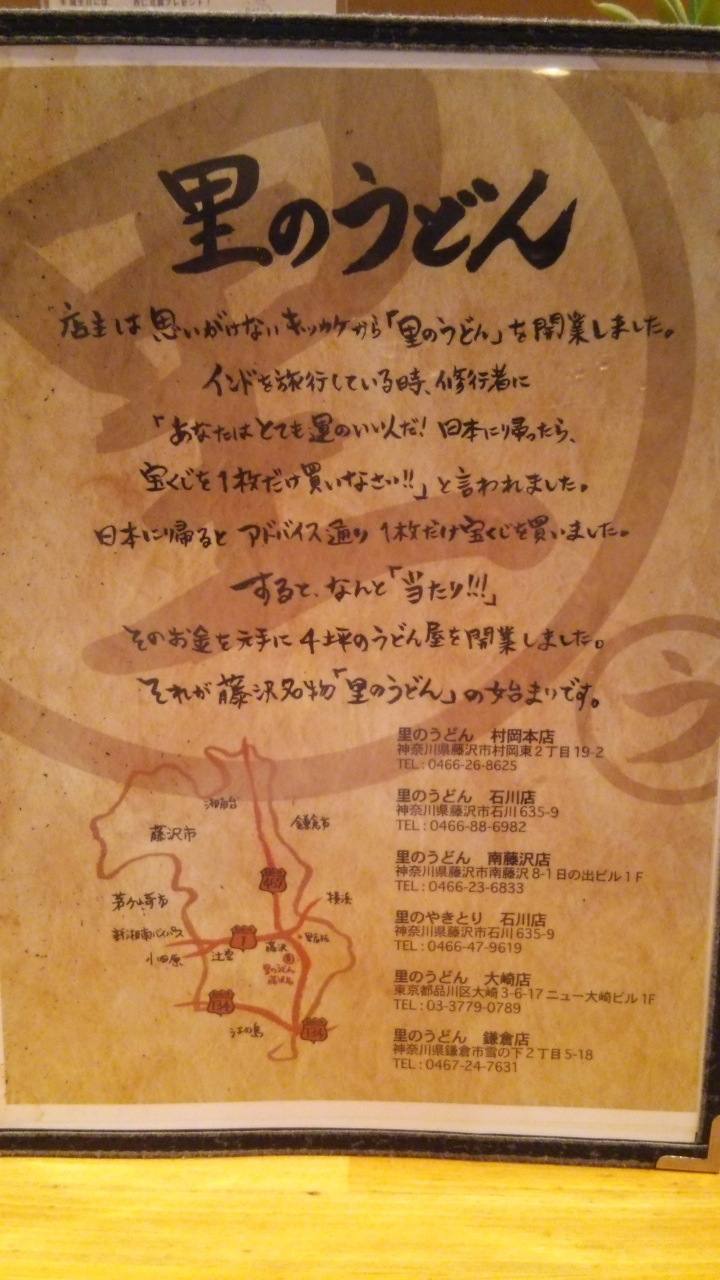 里のうどん
店主は思いがけないキッカケから「里のうどん」を開業しました。
インドを旅行している時、修行者に
「あなたはとても運のいい人だ! 日本に帰ったら、
宝くじを1枚だけ買いなさい!!」と言われました。
日本に帰ると アドバイス通り 1枚だけ宝くじを買いました。
すると、なんと「当たり!!!」
そのお金を元手に 4坪のうどん屋を開業しました。
それが藤沢名物「里のうどん」の始まりです。
里のうどん 村岡本店
神奈川県藤沢市村岡東2丁目19-2
TEL:0466-26-8625
里のうどん 石川店
神奈川県藤沢市石川635-9
TEL:0466-88-6982
里のうどん 南藤沢店
神奈川県藤沢市南藤沢8-1日の出ビル1F
TEL:0466-23-6833
里のやきとり 石川店
神奈川県藤沢市石川635-9
TEL:0466-47-9619
里のうどん 大崎店
東京都品川区大崎3-6-17ニュー大崎ビル1F
TEL:03-3779-0789
里のうどん 鎌倉店
神奈川県鎌倉市雪の下2丁目5-18
TEL:0467-24-7631
湘南台
鎌倉市
藤沢市
467
茅ヶ崎市
横浜
新湘南バイパス
1
小田原
辻堂
藤沢
里のうどん
134
江の島
134
里
う